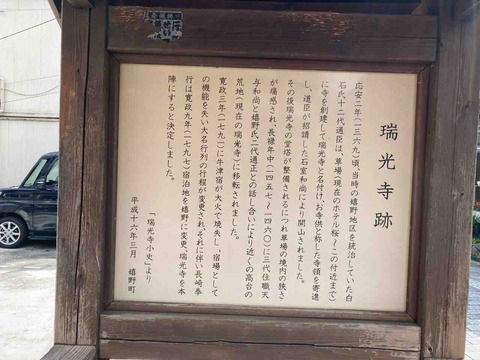 瑞光寺跡
応安二年(一三六九)頃、当時の嬉野地区を統治していた白
石氏十二代通臣は、草場(現在のホテル桜〜この付近まで)
に寺を創建して瑞光寺と名付け、お寺供と称した寺領を寄進
し、道臣が招請した石室和尚により開山されました。
その後瑞光寺の堂塔が整備されるにつれ草場の境内の狭さ
が痛感され、長禄年中(一四五七〜一四六〇)に三代住職天
与和尚と嬉野氏二代通正との話し合いにより近くの高台の
荒地(現在の瑞光寺)に移転されました。
寛政三年(一七九一)に牛津宿が大火で焼失し、宿場として
の機能を失い大名行列の行程が変更され、それに伴い長崎奉
行は寛政九年(一七九七)宿泊地を嬉野に変更、瑞光寺を本
陣にすると決定しました。
「瑞光寺小史」より
平成十六年三月 嬉野町